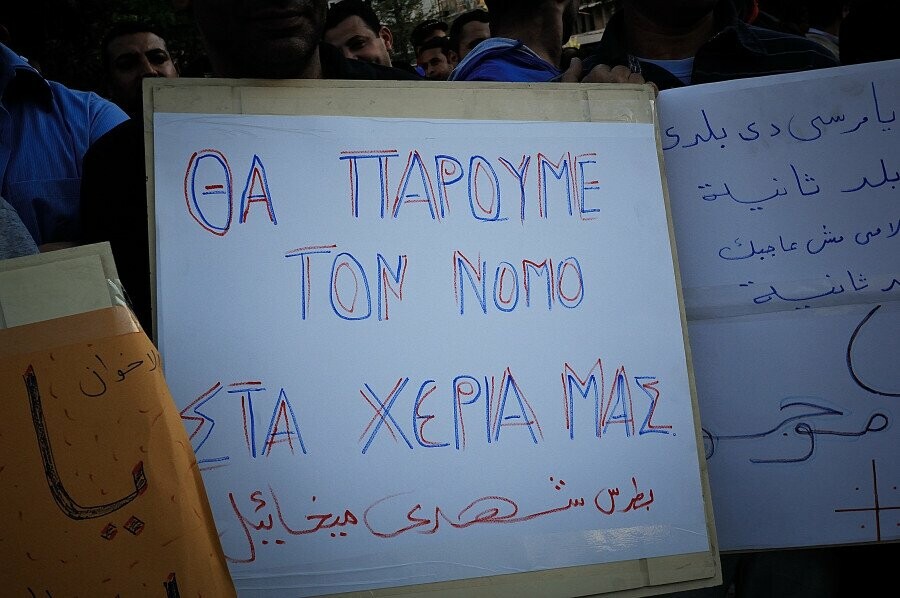 ΘΑ ΠΑΡΟΥΜΕ
ΤΟΝ ΝΟΜΟ
ΣΤΑ ΧΕΡΙΑ ΜΑΣ.
بطرس شهدى ميخائيل
يا مرسى دى بلدى
بلد ثانية
مش عاجبك
ثانية
يا
لاخوان